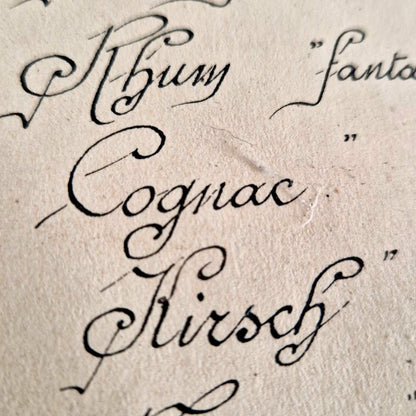 Rhum "fanta
Cognac "
Kirsch "